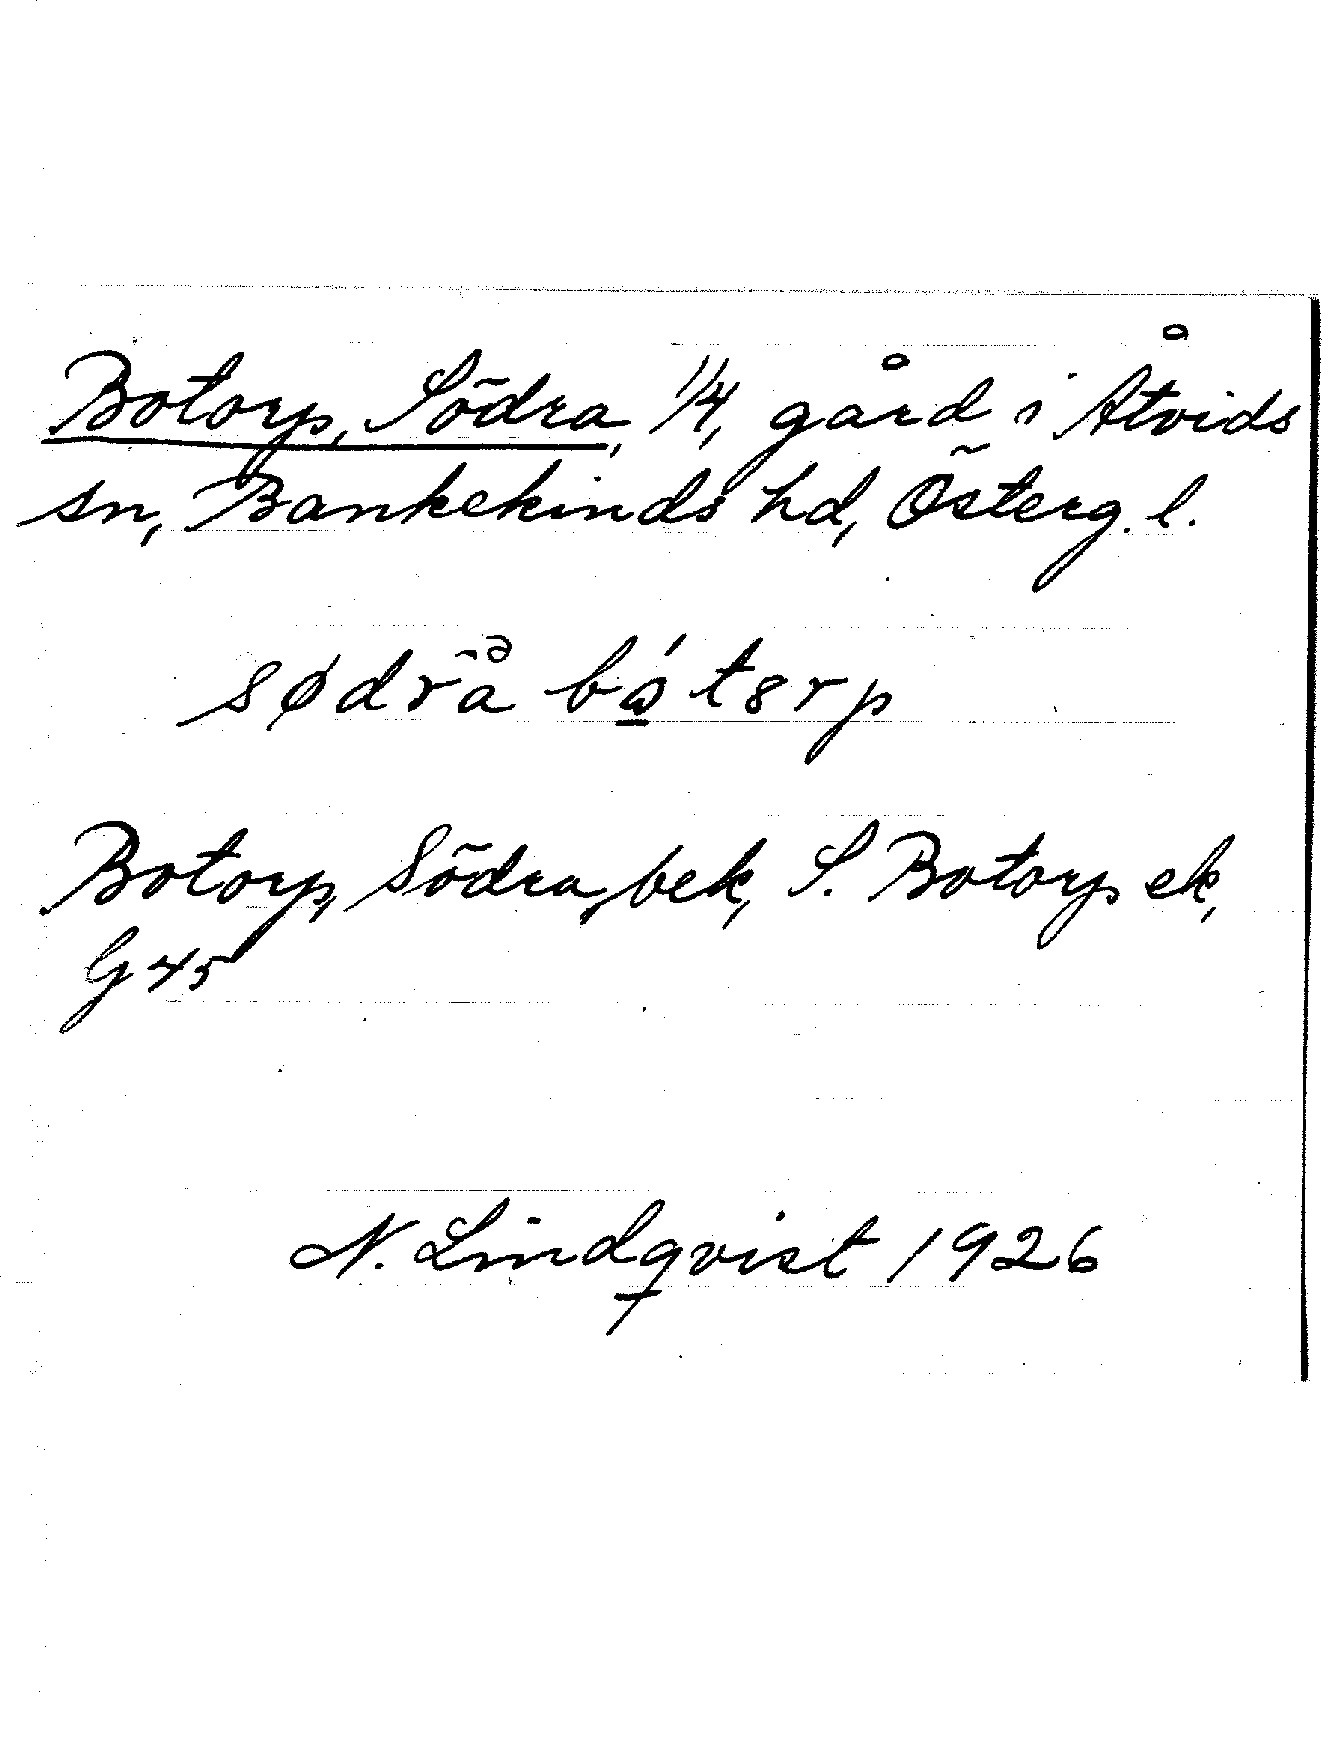 Botorp, Södra, 1/4, gård i Åtvids
sn, Bankekinds hd, Österg. l.
Botorp, Södra, bek, S. Botorp ek,
G 45
N. Lindqvist 1926